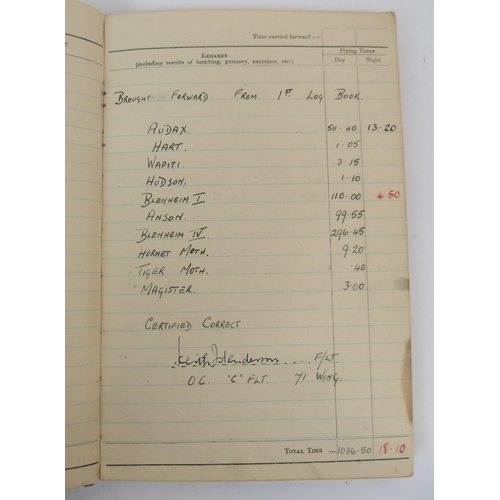 Time carried forward :—
REMARKS
(including results of bombing, gunnery, exercises, etc.)
Flying Times
Day Night
BROUGHT FORWARD FROM 1ST LOG BOOK
AUDAX. 511·40 13·20
HART. 1·05
WAPITI. 3·15
HUDSON. 1·10
BLENHEIM I 110·00 4·50
ANSON. 99·55
BLENHEIM IV 296·45
HORNET MOTH. 9·20
TIGER MOTH. ·40
MAGISTER. 3·00
CERTIFIED CORRECT
Keith Henderson F/LT.
O.C. "C" FLT. 71 WING.
TOTAL TIME ... 1036·50 18·10